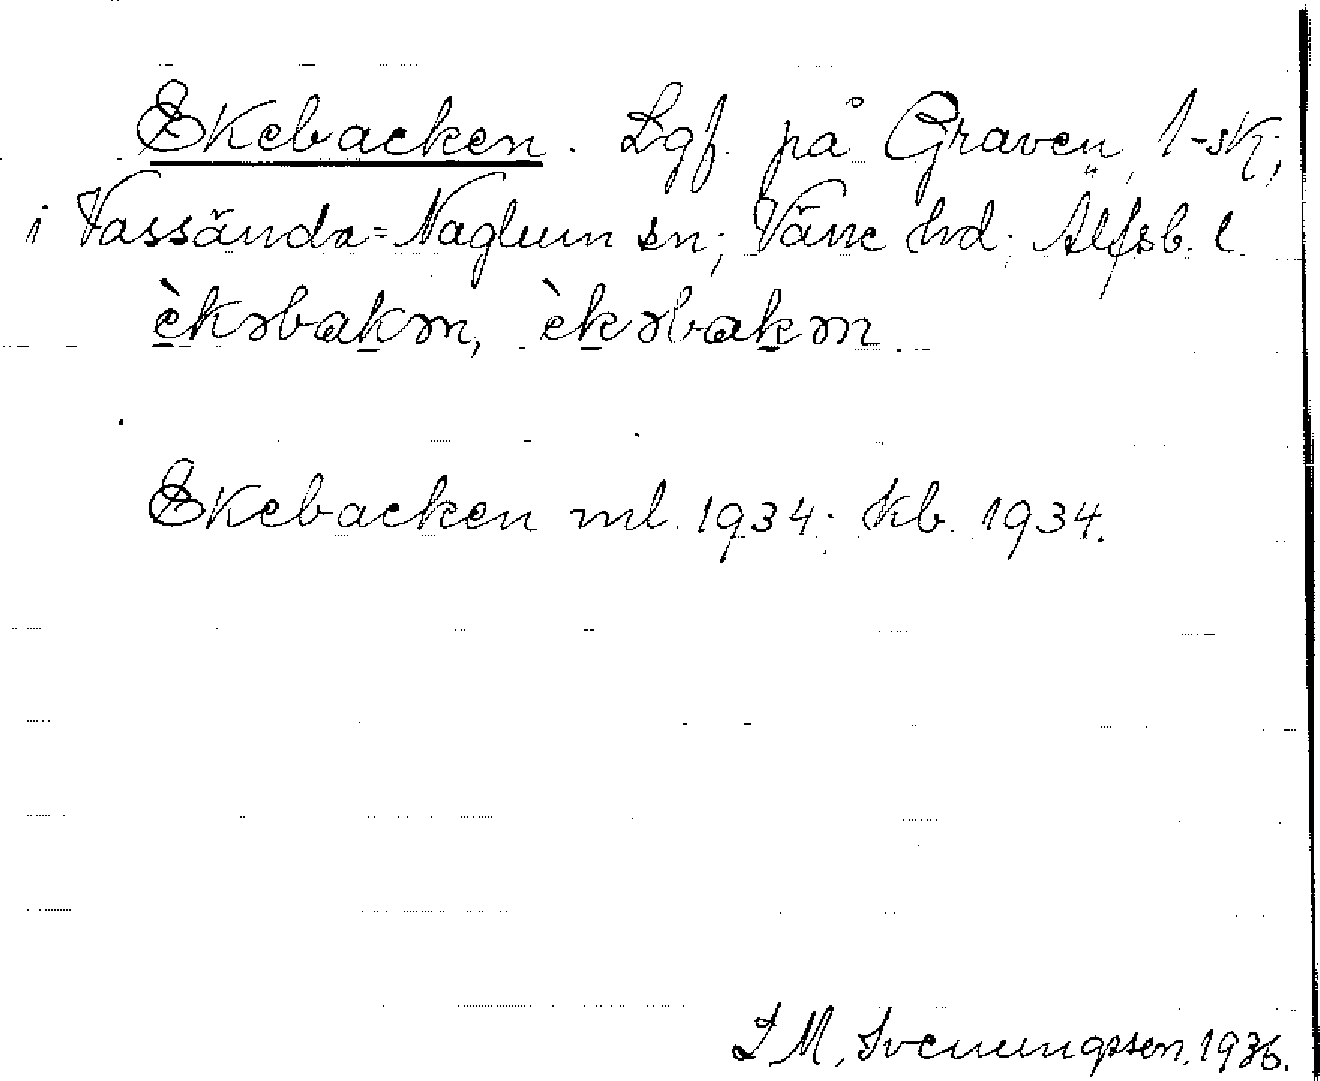 Ekebacken. Lgf. på Graven, 1-sk;
i Vassända=Naglum sn; Väne hd; Älfsb. l.
èkəbakən, èkəbakən.
Ekebacken ml. 1934; kb. 1934.
S M, Svenungsson, 1936.